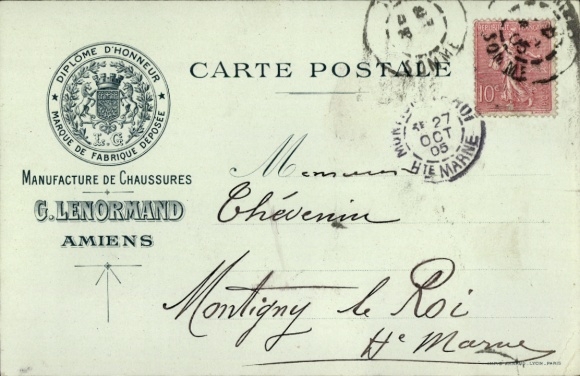 DIPLÔME D'HONNEUR
MARQUE DE FABRIQUE DÉPOSÉE
L.G.
MANUFACTURE DE CHAUSSURES
G. LENORMAND
AMIENS
CARTE POSTALE
SOMME
10c
SOMME
27
OCT
05
HTE MARNE
Messieurs
Thévenin
Montigny le Roi
Hte Marne
LYON, PARIS